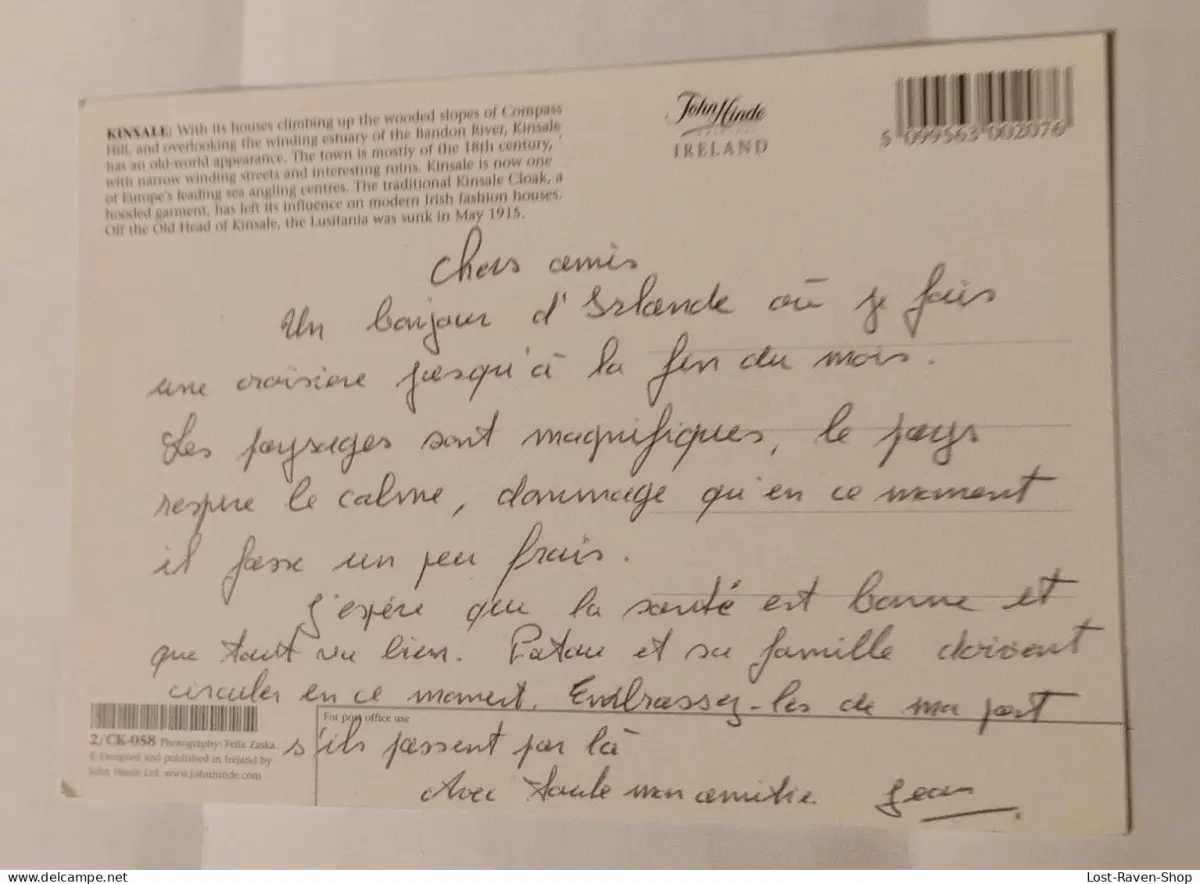 KINSALE: With its houses climbing up the wooded slopes of Compass
Hill, and overlooking the winding estuary of the Bandon River, Kinsale
has an old-world appearance. The town is mostly of the 18th century,
with narrow winding streets and interesting ruins. Kinsale is now one
of Europe's leading sea angling centres. The traditional Kinsale Cloak, a
hooded garment, has left its influence on modern Irish fashion houses.
Off the Old Head of Kinsale, the Lusitania was sunk in May 1915.
John Hinde
IRELAND
5 099563 002076
Chers amis
Un bonjour d'Irlande où je fais
une croisière jusqu'à la fin du mois.
Les paysages sont magnifiques, le pays
respire le calme, dommage qu'en ce moment
il fasse un peu frais.
J'espère que la santé est bonne et
que tout va bien. et sa famille doivent
circuler en ce moment. Embrassez-les de ma part
s'ils passent par là
Avec toute mon amitié. Jean
For post office use
2/CK-058 Photography: Felix Zaska.
© Designed and published in Ireland by
John Hinde Ltd. www.johnhinde.com
www.delcampe.net
Lost-Raven-Shop